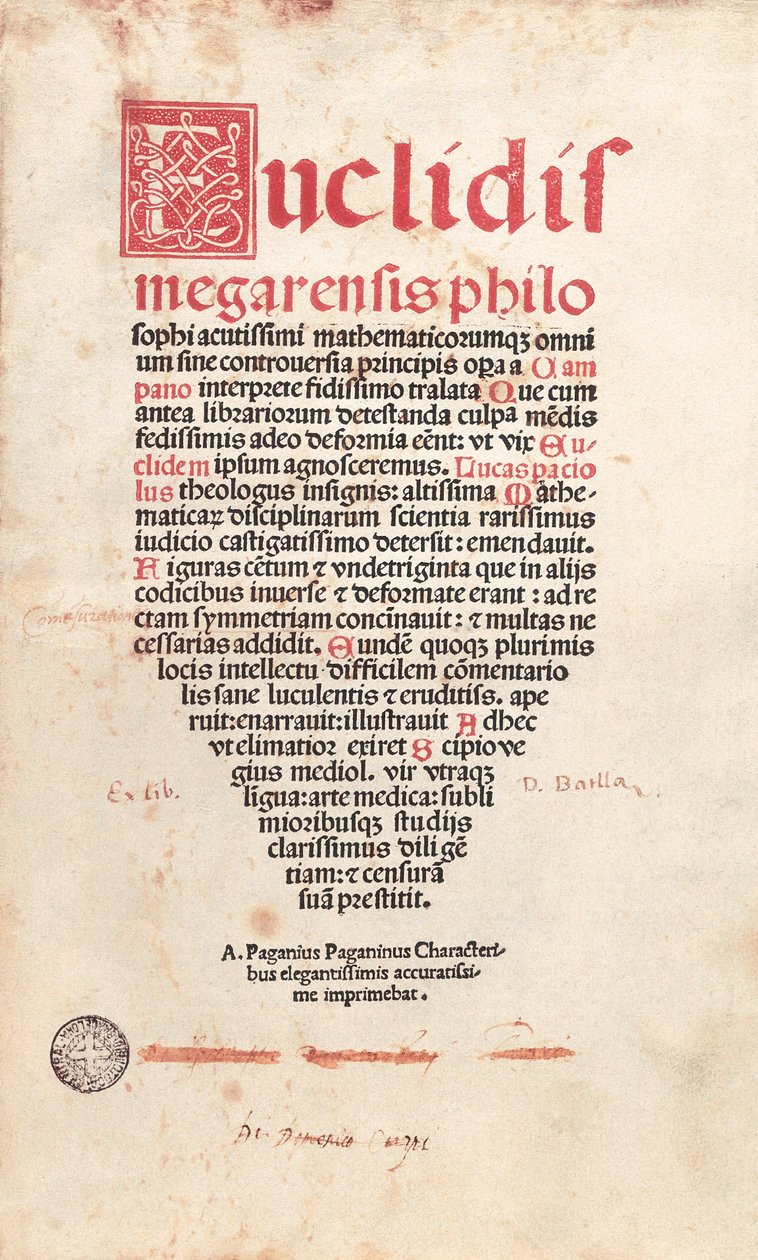 Euclidis
megarensis philo
sophi acutissimi mathematicorumqꝫ omni
um sine controuersia principis oꝑa a Cam
pano interprete fidissimo tralata Que cum
antea librariorum detestanda culpa mēdis
fedissimis adeo deformia eēnt: vt vix Eu-
clidem ipsum agnosceremus. Lucas pacio
lus theologus insignis: altissima Mathe-
maticaꝝ disciplinarum scientia rarissimus
iudicio castigatissimo detersit: emendauit.
Figuras cētum ⁊ vndetriginta que in alijs
codicibus inuerse ⁊ deformate erant: ad re
ctam symmetriam concīnauit: ⁊ multas ne
cessarias addidit. Eundē quoqꝫ plurimis
locis intellectu difficilem cōmentario
lis sane luculentis ⁊ eruditiss. ape
ruit: enarrauit: illustrauit Adhec
vt elimatior exiret Scipio ve
gius mediol. vir vtraqꝫ
līgua: arte medica: subli
mioribusqꝫ studijs
clarissimus diligē
tiam: ⁊ censurā
suā prestitit.
Ex lib. D. Batlla
A. Paganius Paganinus Characteri-
bus elegantissimis accuratissi-
me imprimebat.